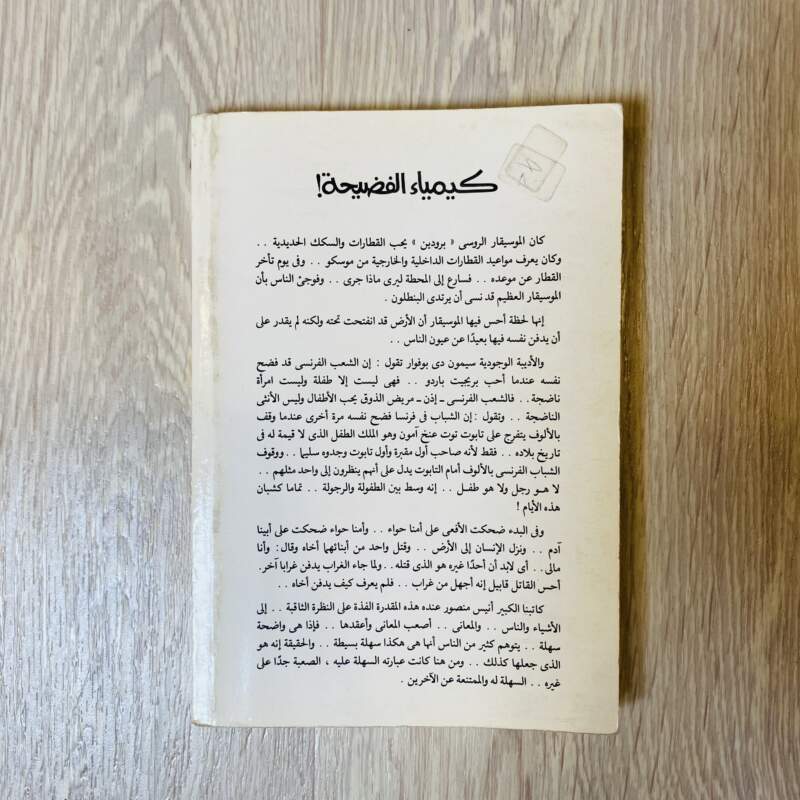 كيمياء الفضيحة!
كان الموسيقار الروسى « برودين » يحب القطارات والسكك الحديدية . .
وكان يعرف مواعيد القطارات الداخلية والخارجية من موسكو . . وفى يوم تأخر
القطار عن موعده . . فسارع إلى المحطة ليرى ماذا جرى . . وفوجئ الناس بأن
الموسيقار العظيم قد نسى أن يرتدى البنطلون .
إنها لحظة أحس فيها الموسيقار أن الأرض قد انفتحت تحته ولكنه لم يقدر على
أن يدفن نفسه فيها بعيدًا عن عيون الناس . .
والأديبة الوجودية سيمون دى بوفوار تقول : إن الشعب الفرنسى قد فضح
نفسه عندما أحب بريجيت باردو . . فهى ليست إلا طفلة وليست امرأة
ناضجة . . فالشعب الفرنسى ـ إذن ـ مريض الذوق يحب الأطفال وليس الأنثى
الناضجة . . وتقول : إن الشباب فى فرنسا فضح نفسه مرة أخرى عندما وقف
بالألوف يتفرج على تابوت توت عنخ آمون وهو الملك الطفل الذى لا قيمة له فى
تاريخ بلاده . . فقط لأنه صاحب أول مقبرة وأول تابوت وجدوه سليما . . ووقوف
الشباب الفرنسى بالألوف أمام التابوت يدل على أنهم ينظرون إلى واحد مثلهم . .
لا هـو رجل ولا هو طفـل . . إنه وسط بين الطفولة والرجولة . . تماما كشبان
هذه الأيام !
وفى البدء ضحكت الأفعى على أمنا حواء . . وأمنا حواء ضحكت على أبينا
آدم . . ونزل الإنسان إلى الأرض . . وقتل واحد من أبنائهما أخاه وقال : وأنا
مالى . . أى لابد أن أحدًا غيره هو الذى قتله . . ولما جاء الغراب يدفن غرابا آخر.
أحس القاتل قابيل إنه أجهل من غراب . . فلم يعرف كيف يدفن أخاه . .
كاتبنا الكبير أنيس منصور عنده هذه المقدرة الفذة على النظرة الثاقبة . . إلى
الأشياء والناس . . والمعانى . . أصعب المعانى وأعقدها . . فإذا هى واضحة
سهلة . . يتوهم كثير من الناس أنها هى هكذا سهلة بسيطة . . والحقيقة إنه هو
الذى جعلها كذلك . . ومن هنا كانت عبارته السهلة عليه ، الصعبة جدًا على
غيره . . السهلة له والممتنعة عن الآخرين .